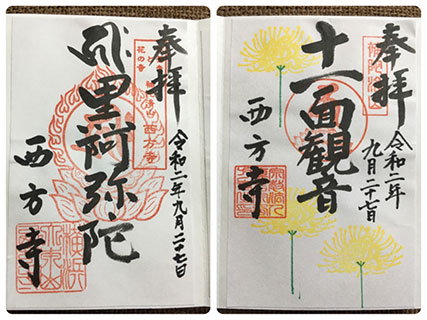 奉拝
花の寺
西方寺
里阿弥陀
令和二年九月二十七日
西方寺
横浜
奉拝
十一面観音
令和二年
九月二十七日
西方寺